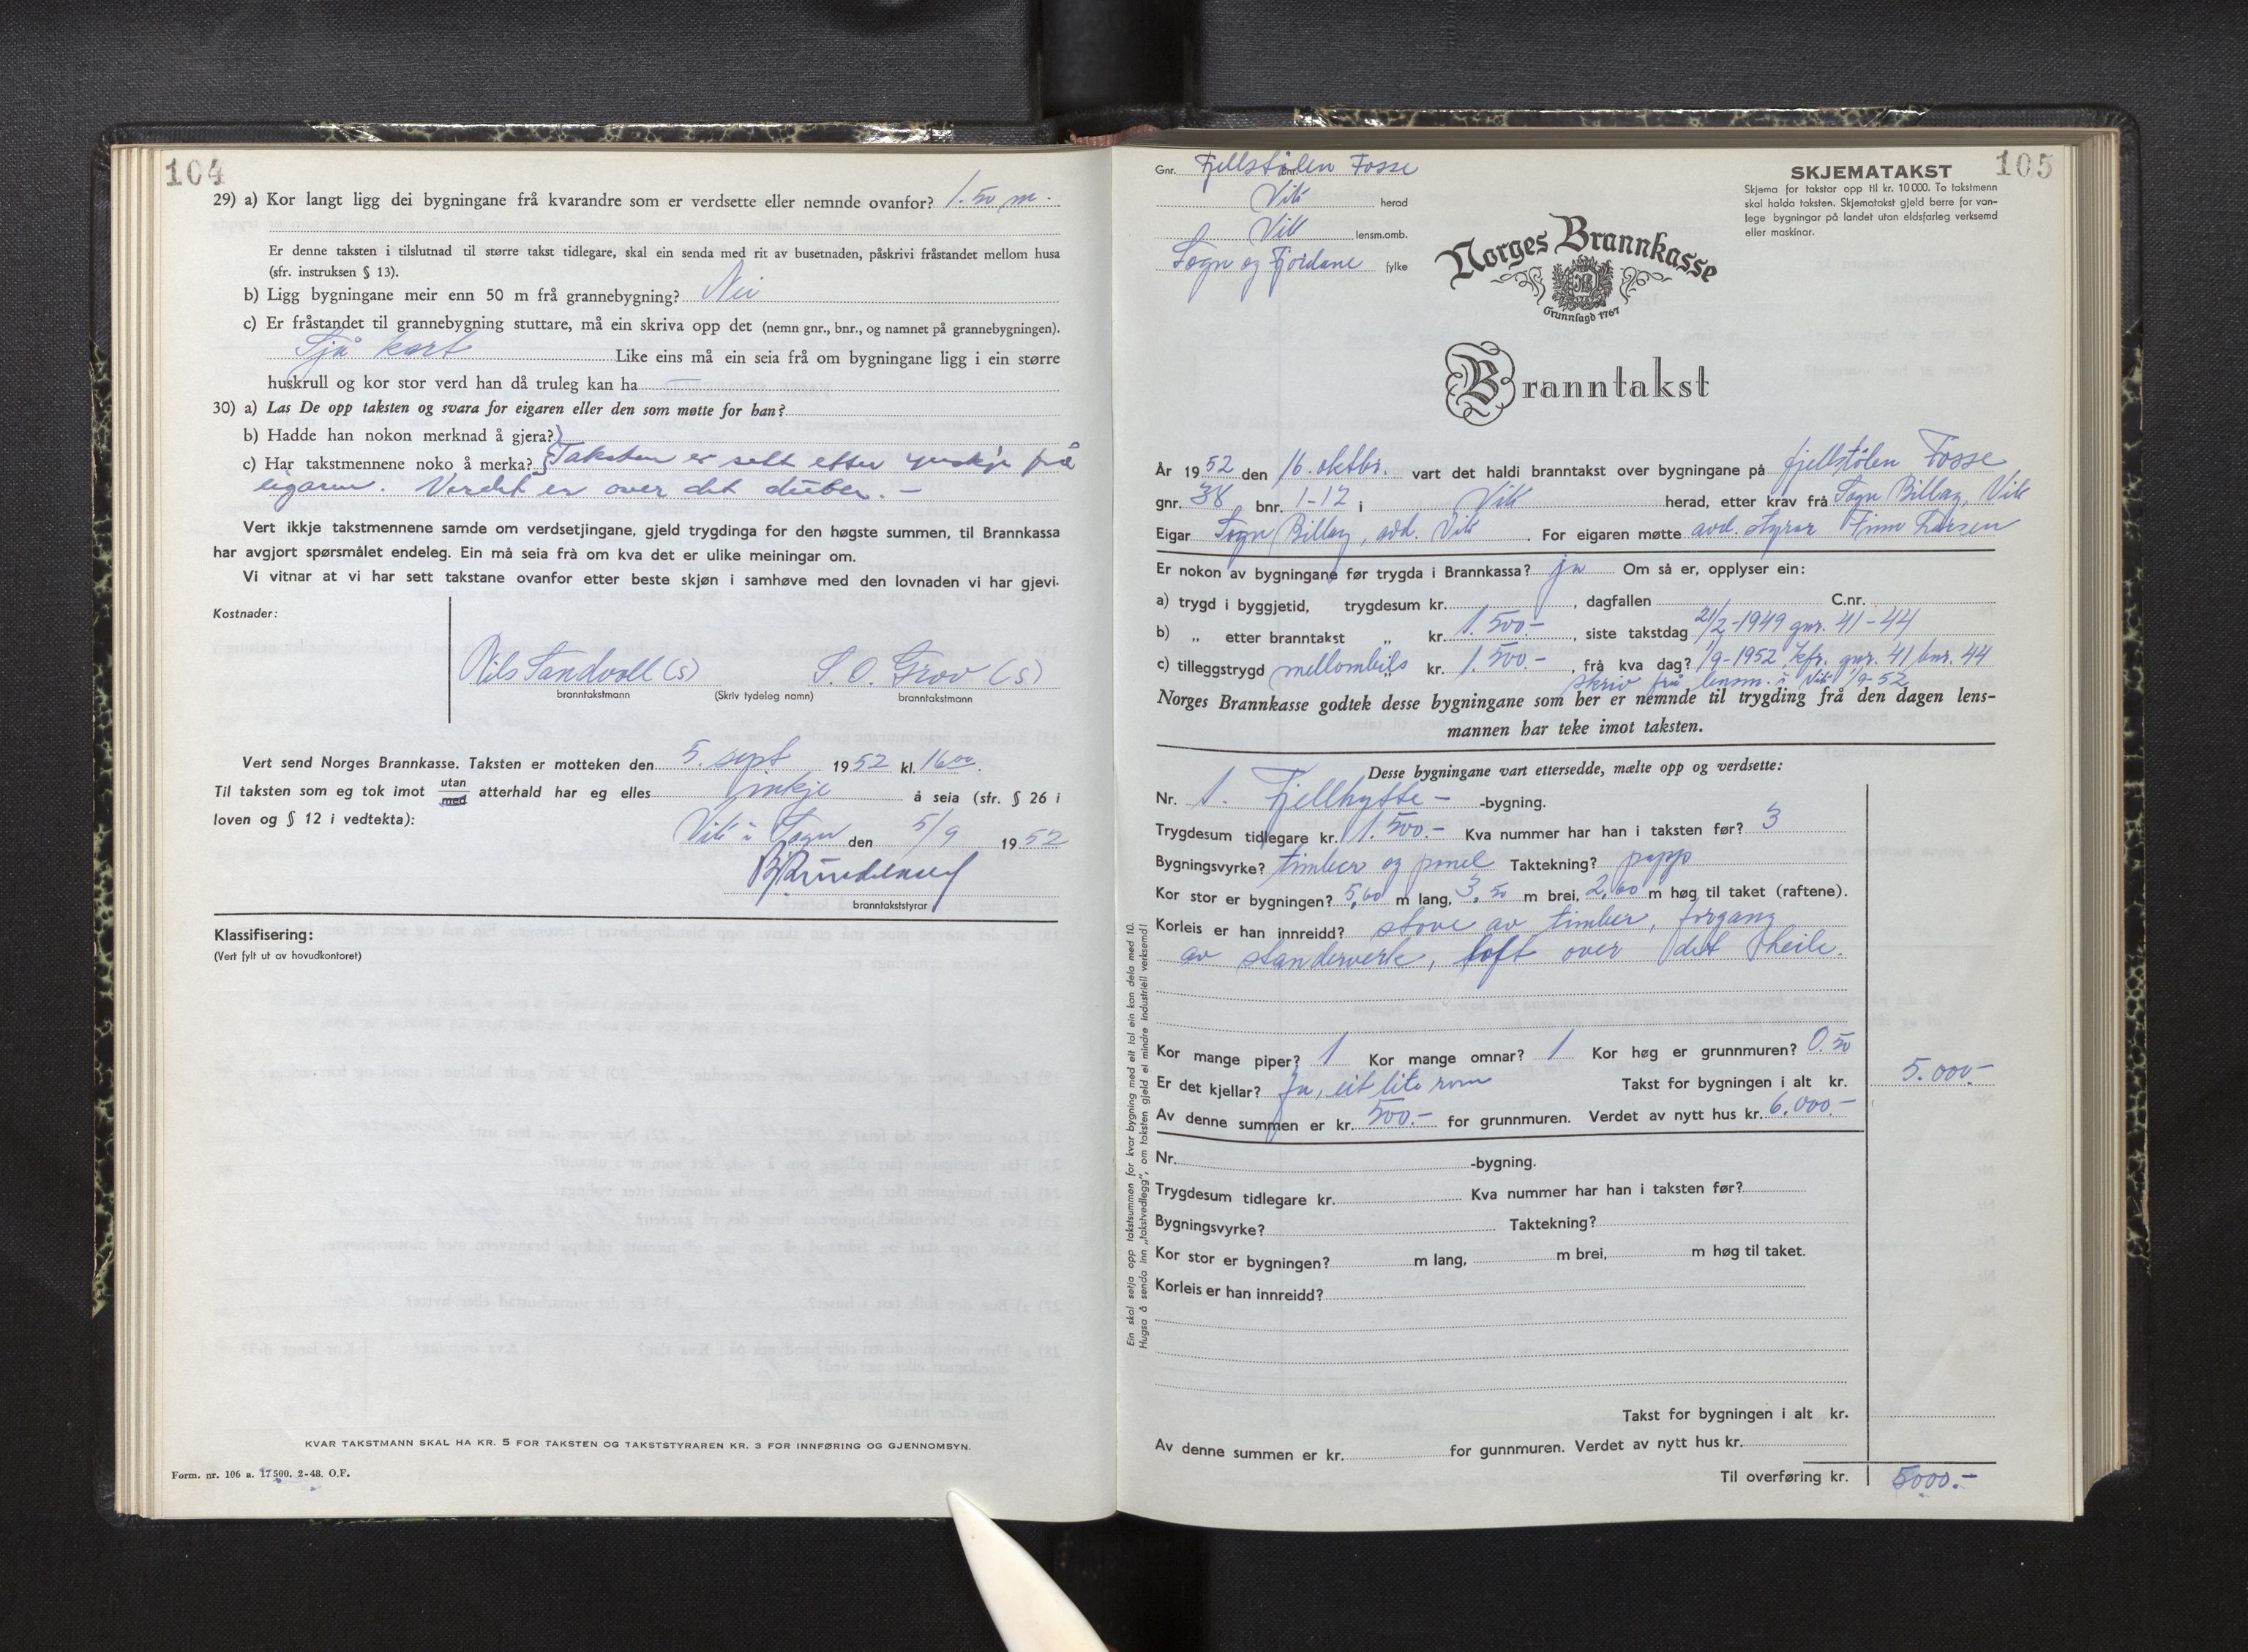 104
29) a) Kor langt ligg dei bygningane frå kvarandre som er verdsette eller nemnde ovanfor? 1.50 m.
Er denne taksten i tilslutnad til større takst tidlegare, skal ein senda med rit av busetnaden, påskrivi fråstandet mellom husa
(sfr. instruksen § 13).
b) Ligg bygningane meir enn 50 m frå grannebygning? Nei
c) Er fråstandet til grannebygning stuttare, må ein skriva opp det (nemn gnr., bnr., og namnet på grannebygningen).
Sjå kart Like eins må ein seia frå om bygningane ligg i ein større
huskrull og kor stor verd han då truleg kan ha —
30) a) Las De opp taksten og svara for eigaren eller den som møtte for han?
b) Hadde han nokon merknad å gjera?
c) Har takstmennene noko å merka? Taksten er sett etter ynskje frå
eigaren. Verdet er over det duber. —
Vert ikkje takstmennene samde om verdsetjingane, gjeld trygdinga for den høgste summen, til Brannkassa
har avgjort spørsmålet endeleg. Ein må seia frå om kva det er ulike meiningar om.
Vi vitnar at vi har sett takstane ovanfor etter beste skjøn i samhøve med den lovnaden vi har gjevi.
Kostnader:
Nils Sandvoll (s) S. O. Grov (s)
branntakstmann (Skriv tydeleg namn) branntakstmann
Vert send Norges Brannkasse. Taksten er motteken den 5. sept 1952 kl. 16⁰⁰.
Til taksten som eg tok imot utan med atterhald har eg elles inkje å seia (sfr. § 26 i
loven og § 12 i vedtekta):
Vik i Sogn den 5/9 1952
branntakststyrar
Klassifisering:
(Vert fylt ut av hovudkontoret)
KVAR TAKSTMANN SKAL HA KR. 5 FOR TAKSTEN OG TAKSTSTYRAREN KR. 3 FOR INNFØRING OG GJENNOMSYN.
Form. nr. 106 a. 17500. 2-48. O.F.
105
Gnr. Fjellstølen Fosse Bnr.
Vik herad
Vik lensm.omb.
Sogn og Fjordane fylke
SKJEMATAKST
Skjema for takstar opp til kr. 10 000. To takstmenn
skal halda taksten. Skjematakst gjeld berre for van-
lege bygningar på landet utan eldsfarleg verksemd
eller maskinar.
Norges Brannkasse
Grunnlagd 1767
Branntakst
År 1952 den 16. oktbr. vart det haldi branntakst over bygningane på fjellstølen Fosse
gnr. 38 bnr. 1-12 i Vik herad, etter krav frå Sogn Billag, Vik
Eigar Sogn Billag, avd. Vik. For eigaren møtte avd. styrar Finn Larsen
Er nokon av bygningane før trygda i Brannkassa? ja Om så er, opplyser ein:
a) trygd i byggjetid, trygdesum kr. , dagfallen C.nr.
b) „ etter branntakst „ kr. 1.500.- , siste takstdag 21/2-1949 gnr. 41-44
c) tilleggstrygd mellombils „ kr. 1.500.- , frå kva dag? 1/9-1952. kfr. gnr. 41 bnr. 44
skriv frå lensm. i Vik 1/9-52
Norges Brannkasse godtek desse bygningane som her er nemnde til trygding frå den dagen lens-
mannen har teke imot taksten.
Desse bygningane vart ettersedde, mælte opp og verdsette:
Nr. 1. Fjellhytte - -bygning.
Trygdesum tidlegare kr. 1.500.- Kva nummer har han i taksten før? 3
Bygningsvyrke? timber og panel Taktekning? papp
Kor stor er bygningen? 5,00 m lang, 3,50 m brei, 2,60 m høg til taket (raftene).
Korleis er han innreidd? stove av timber, forgang
av standerverk, loft over det heile.
Kor mange piper? 1 Kor mange omnar? 1 Kor høg er grunnmuren? 0.50
Er det kjellar? Ja, eit lite rom Takst for bygningen i alt kr. 5.000-
Av denne summen er kr. 500.- for grunnmuren. Verdet av nytt hus kr. 6.000.-
Nr. -bygning.
Trygdesum tidlegare kr. Kva nummer har han i taksten før?
Bygningsvyrke? Taktekning?
Kor stor er bygningen? m lang, m brei, m høg til taket.
Korleis er han innreidd?
Takst for bygningen i alt kr.
Av denne summen er kr. for gunnmuren. Verdet av nytt hus kr.
Til overføring kr. 5000.-
Ein skal setja opp takstsummen for kvar bygning med eit tal ein kan dela med 10.
Hugsa å senda inn „takstvedlegg", om taksten gjeld ei mindre industriell verksemd!